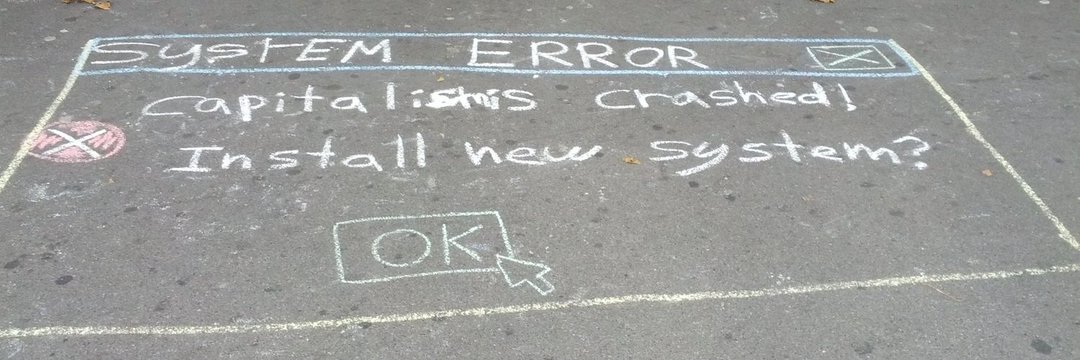 SYSTEM ERROR
capitalismis crashed!
Install new system?
OK